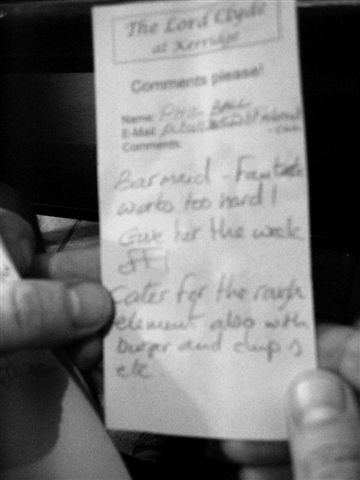 The Lord Clyde
at Kerridge
Comments please!
Name: PHIL BALL
E-Mail:
Comments:
Barmaid - Fantastic
works too hard!
Give her the week
off!
Cater for the rough
element also with
burger and chips
etc